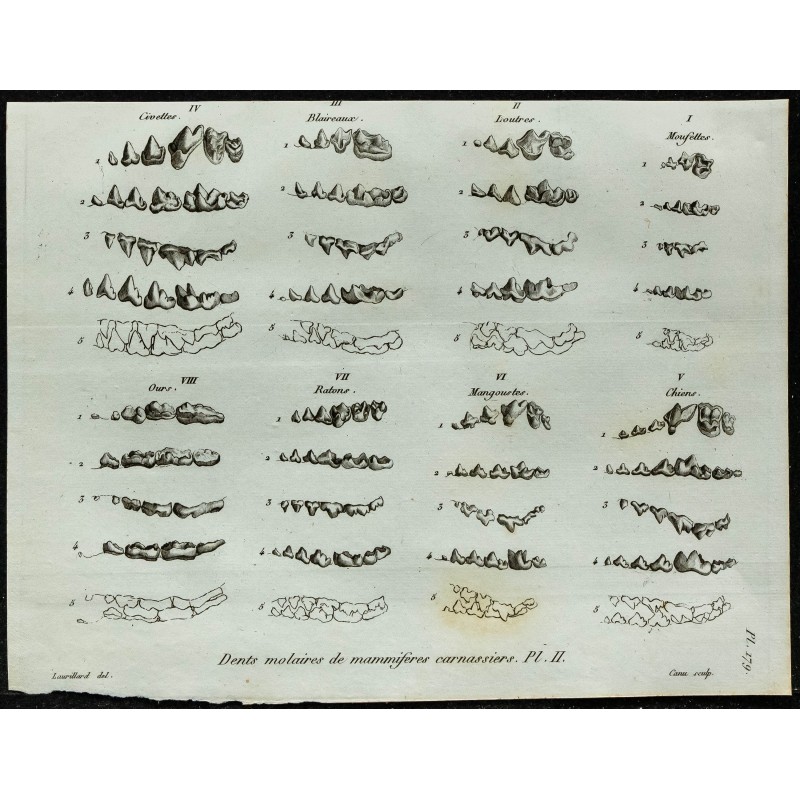 IV III II I
Civettes. Blaireaux. Loutres. Moufettes.
1 1 1 1
2 2 2 2
3 3 3 3
4 4 4 4
5 5 5 5
VIII VII VI V
Ours. Ratons. Mangoustes. Chiens.
1 1 1 1
2 2 2 2
3 3 3 3
4 4 4 4
5 5 5 5
Dents molaires de mammifères carnassiers. Pl. II.
Laurillard del. Canu sculp.
Pl. 179.